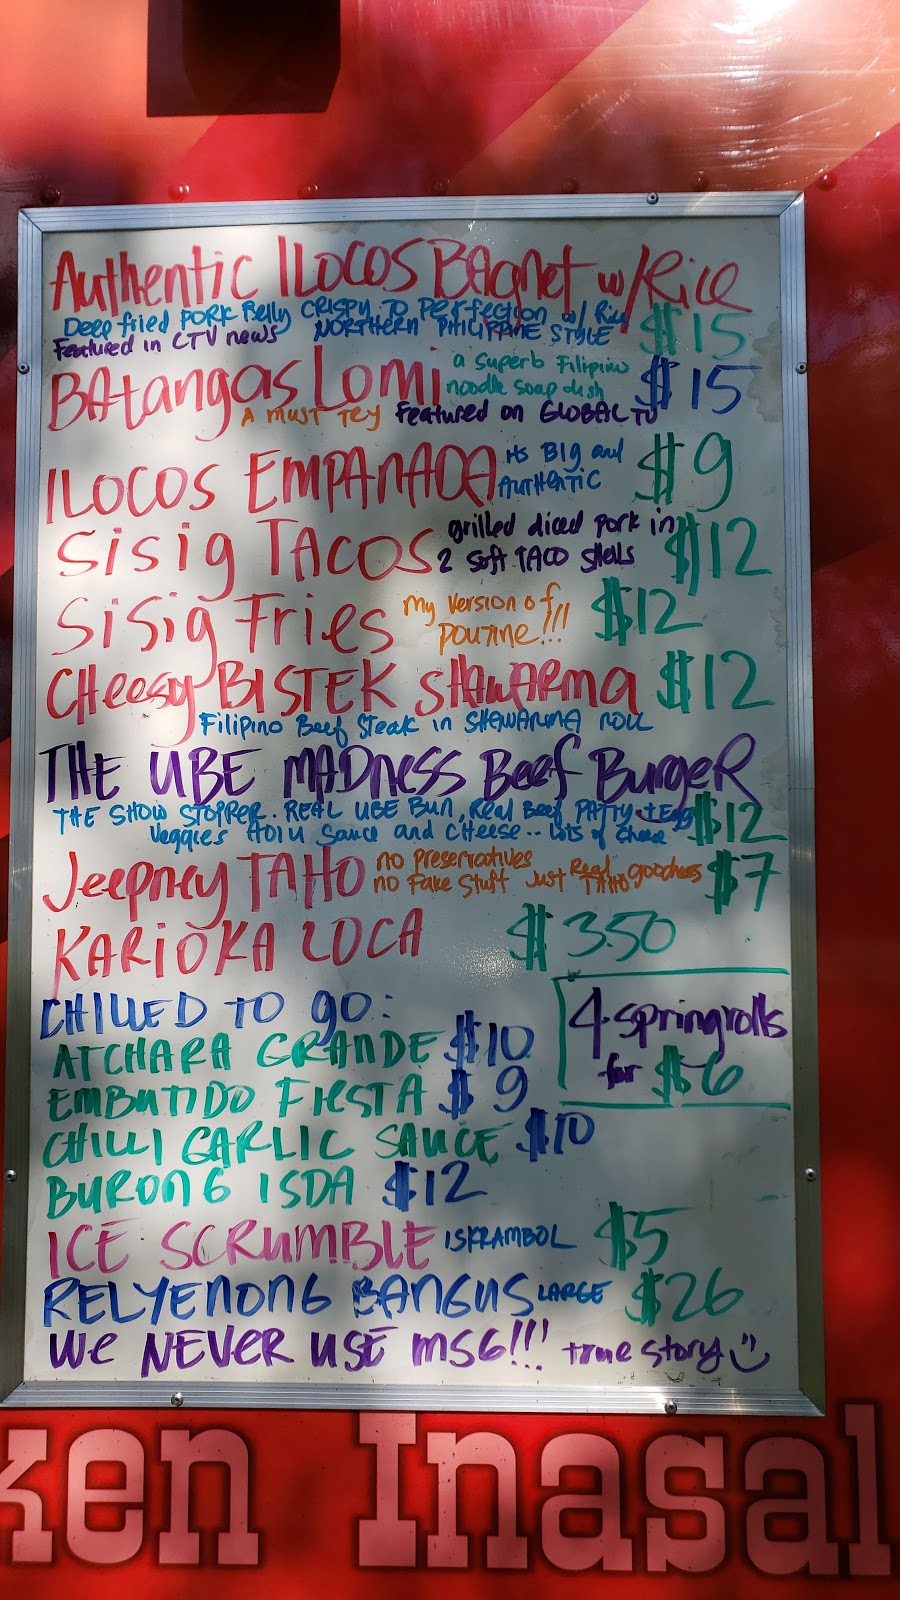 Authentic ILOCOS BAgnet w/Rice
Deep fried PORK Belly CRISPY TO Perfection w/ Rice
Featured in CTV news NORTHERN PHILIPPINE STYLE $15
BAtangas Lomi a superb Filipino
noodle soap dish $15
A MUST TRY Featured on GLOBAL TV
ILOCOS EMPANADA its BIG and
AUTHENTIC $9
SiSig TACOS grilled diced pork in
2 soft TACO shells $12
SiSig Fries my version of
poutine!!! $12
CHeesy BISTEK SHAWARMA $12
Filipino Beef Steak in SHAWARMA roll
THE UBE MADness Beef BurgeR
THE SHOW STOPPER. REAL UBE Bun, Real Beef PATTY + Egg
Veggies Sauce and CHeese.. Lots of cheese $12
Jeepney TAHO no preservatives
no Fake Stuff Just Real TAHO goodness $7
KARIOKA LOCA $3.50
CHILLED TO go:
4 springrolls
for $6
ATCHARA GRANDE $10
EMBUTIDO FIESTA $9
CHILLI GARLIC SAUCE $10
BURONG ISDA $12
ICE SCRUMBLE ISKRAMBOL $5
RELYENONG BANGUS LARGE $26
We NEVER USE MSG!!! true story
ken Inasal